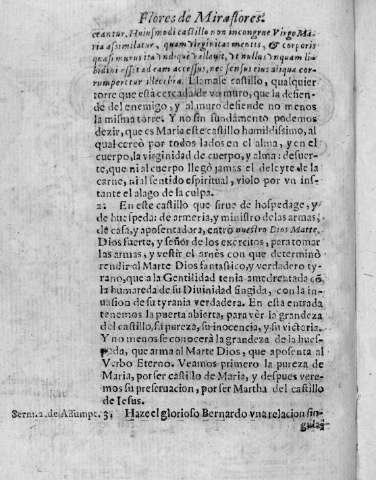 Flores de Miraflores.
ceantur. Huiusmodi castillo non incongrue Virgo Ma-
ria assimilatur, quam virginitas mentis, & corporis
quasi murus ita vndique vallauit, vt nullus vnquam li-
bidini esset ad eam accessus, nec sensus eius aliqua cor-
rumperetur illecebra. Llamase castillo, qualquier
torre que està cercada de vn muro, que la defien-
de del enemigo, y al muro defiende no menos
la misma torre. Y no sin fundamento podemos
dezir, que es Maria este castillo humildissimo, al
qual cercò por todos lados en el alma, y en el
cuerpo, la virginidad de cuerpo, y alma: desuer-
te, que ni al cuerpo llegò jamas el deleyte de la
carne, ni al sentido espiritual, violo por vn ins-
tante el alago de la culpa.
2. En este castillo que sirue de hospedage, y
de huespeda: de armeria, y ministro de las armas;
de casa, y aposentadora, entrò nuestro Dios Marte,
Dios fuerte, y señor de los exercitos, para tomar
las armas, y vestir el arnès con que determinò
rendir al Marte Dios fantastico, y verdadero ty-
rano, que a la Gentilidad tenia amedrentada cõ
la humareda de su Diuinidad fingida, con la in-
uasion de su tyrania verdadera. En esta entrada
tenemos la puerta abierta, para vèr la grandeza
del castillo, su pureza, su inocencia, y su victoria.
Y no menos se conocerà la grandeza de la hues-
peda, que arma al Marte Dios, que aposenta al
Verbo Eterno. Veamos primero la pureza de
Maria, por ser castillo de Maria, y despues vere-
mos su preseruacion, por ser Martha del castillo
de Iesus.
Serm. 2. de Assumpt. 3. Haze el glorioso Bernardo vna relacion sin-
gular